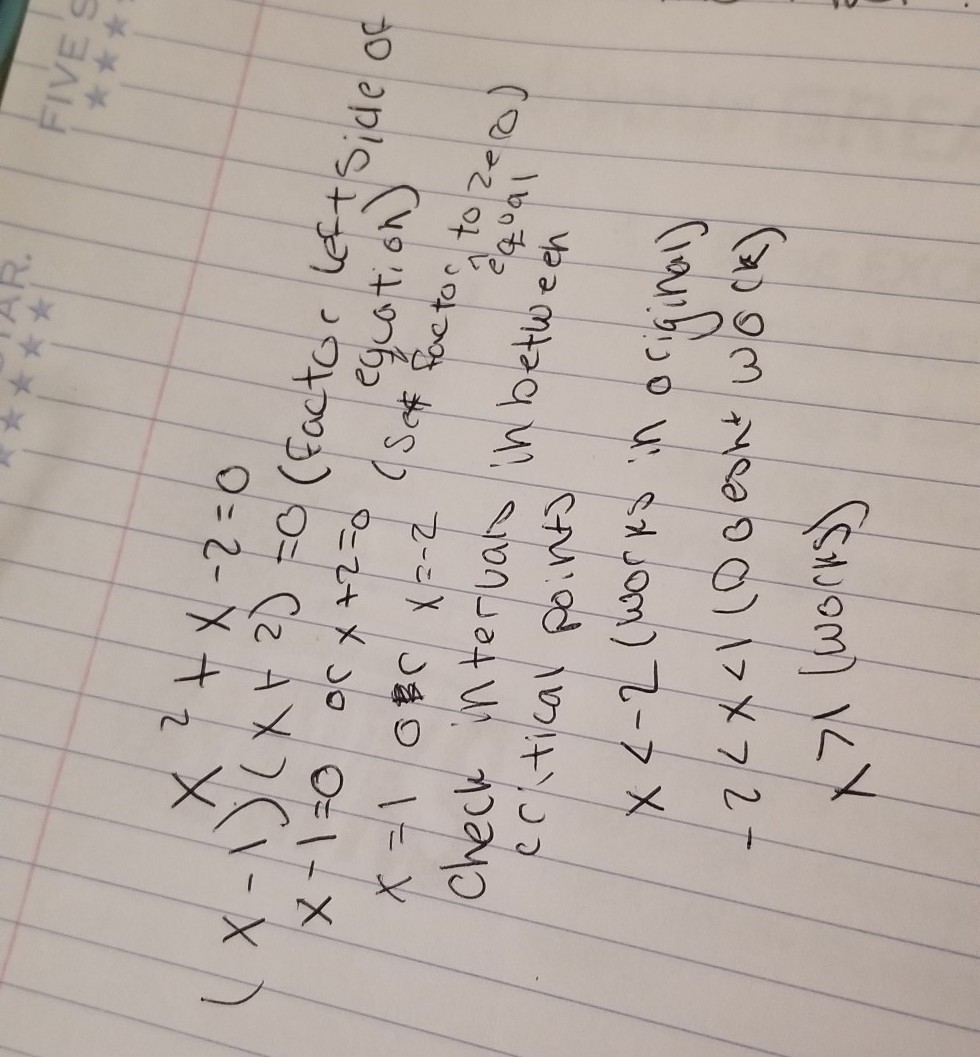 FIVE S
STAR.
x² + x - 2 = 0
(x - 1)(x + 2) = 0 (factor left side of
equation)
x - 1 = 0 or x + 2 = 0
(set factor
to zero)
equal
x = 1 or x = -2
Check intervals in between
critical points
x < -2 (works in original)
-2 < x < 1 (Doesnt work)
x > 1 (works)